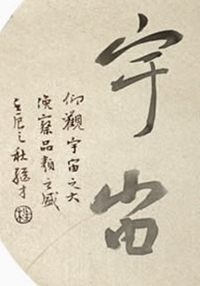 宇宙
仰觀宇宙之大
俯察品類之盛
壬辰之秋